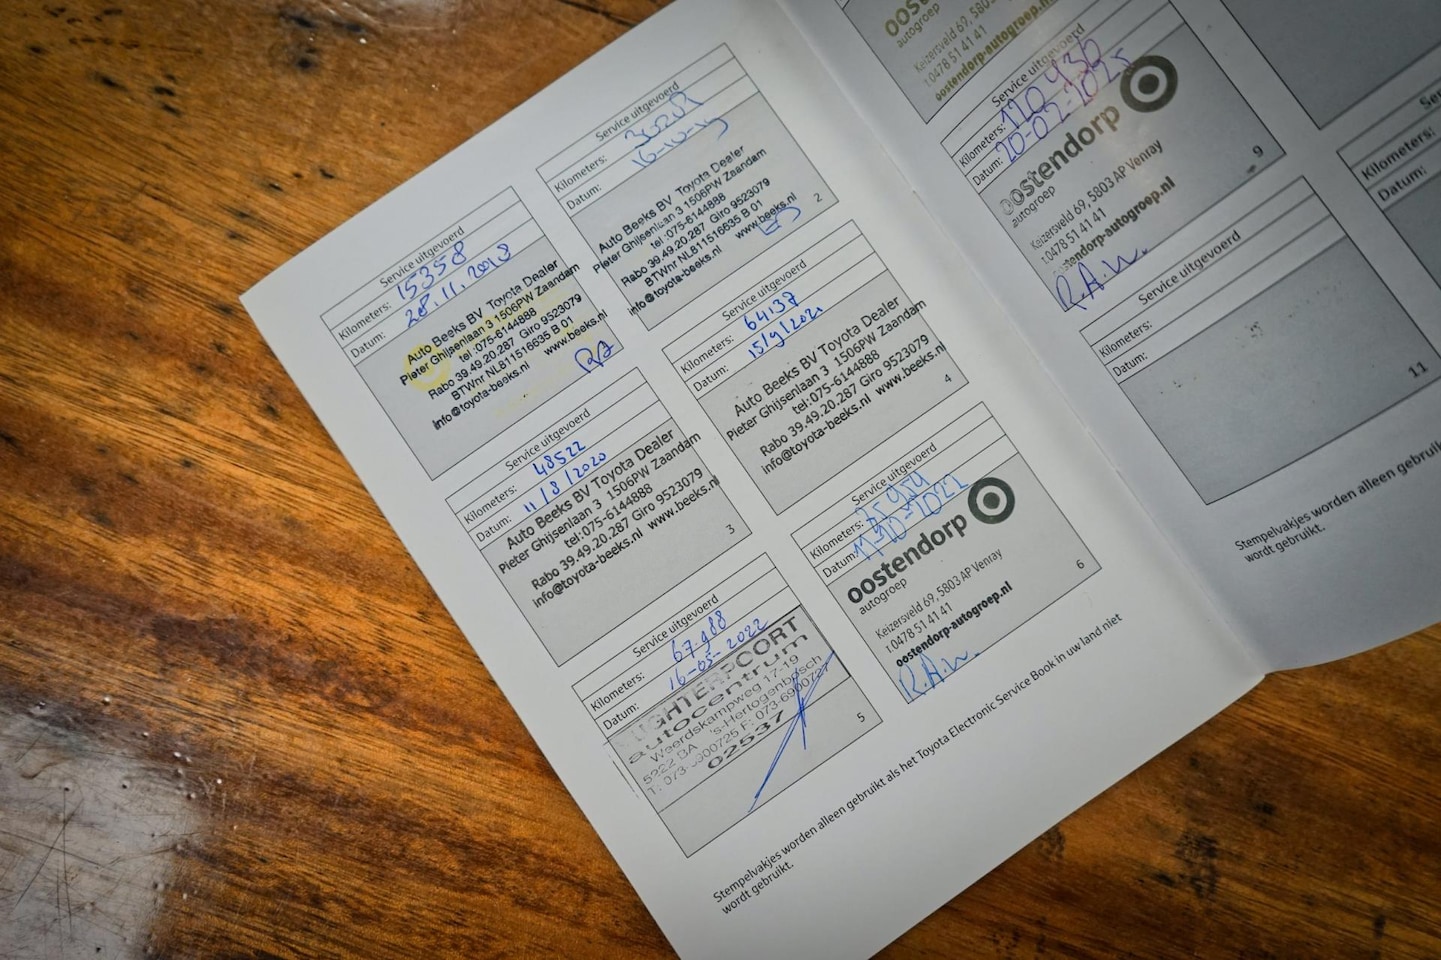 Service uitgevoerd
Kilometers: 15358
Datum: 28.11.2018
Auto Beeks BV Toyota Dealer
Pieter Ghijsenlaan 3 1506PW Zaandam
tel:075-6144888
Rabo 39.49.20.287 Giro 9523079
BTWnr NL811516635 B 01
info@toyota-beeks.nl www.beeks.nl
Service uitgevoerd
Kilometers:
Datum: 16-10-19
Auto Beeks BV Toyota Dealer
Pieter Ghijsenlaan 3 1506PW Zaandam
tel:075-6144888
Rabo 39.49.20.287 Giro 9523079
BTWnr NL811516635 B 01
info@toyota-beeks.nl www.beeks.nl
2
Service uitgevoerd
Kilometers: 48522
Datum: 11/8/2020
Auto Beeks BV Toyota Dealer
Pieter Ghijsenlaan 3 1506PW Zaandam
tel:075-6144888
Rabo 39.49.20.287 Giro 9523079
info@toyota-beeks.nl www.beeks.nl
3
Service uitgevoerd
Kilometers: 64137
Datum: 15/9/2021
Auto Beeks BV Toyota Dealer
Pieter Ghijsenlaan 3 1506PW Zaandam
tel:075-6144888
Rabo 39.49.20.287 Giro 9523079
info@toyota-beeks.nl www.beeks.nl
4
Service uitgevoerd
Kilometers: 67.988
Datum: 16-05-2022
autocentrum
Weerdskampweg 17-19
5222 BA 's-Hertogenbosch
T: 073-6900725 F: 073-6900727
02537
5
Service uitgevoerd
Kilometers:
Datum: 11-10-2022
oostendorp
autogroep
Keizersveld 69, 5803 AP Venray
t 0478 51 41 41
oostendorp-autogroep.nl
R.A.W.
6
Stempelvakjes worden alleen gebruikt als het Toyota Electronic Service Book in uw land niet
wordt gebruikt.
autogroep
Keizersveld 69,
t 0478 51 41 41
oostendorp-autogroep.nl
Service uitgevoerd
Kilometers: 120930
Datum: 20-02-2025
oostendorp
autogroep
Keizersveld 69, 5803 AP Venray
t 0478 51 41 41
oostendorp-autogroep.nl
R.A.W.
9
Service uitgevoerd
Kilometers:
Datum:
11
Kilometers:
Datum:
Stempelvakjes worden alleen
wordt gebruikt.